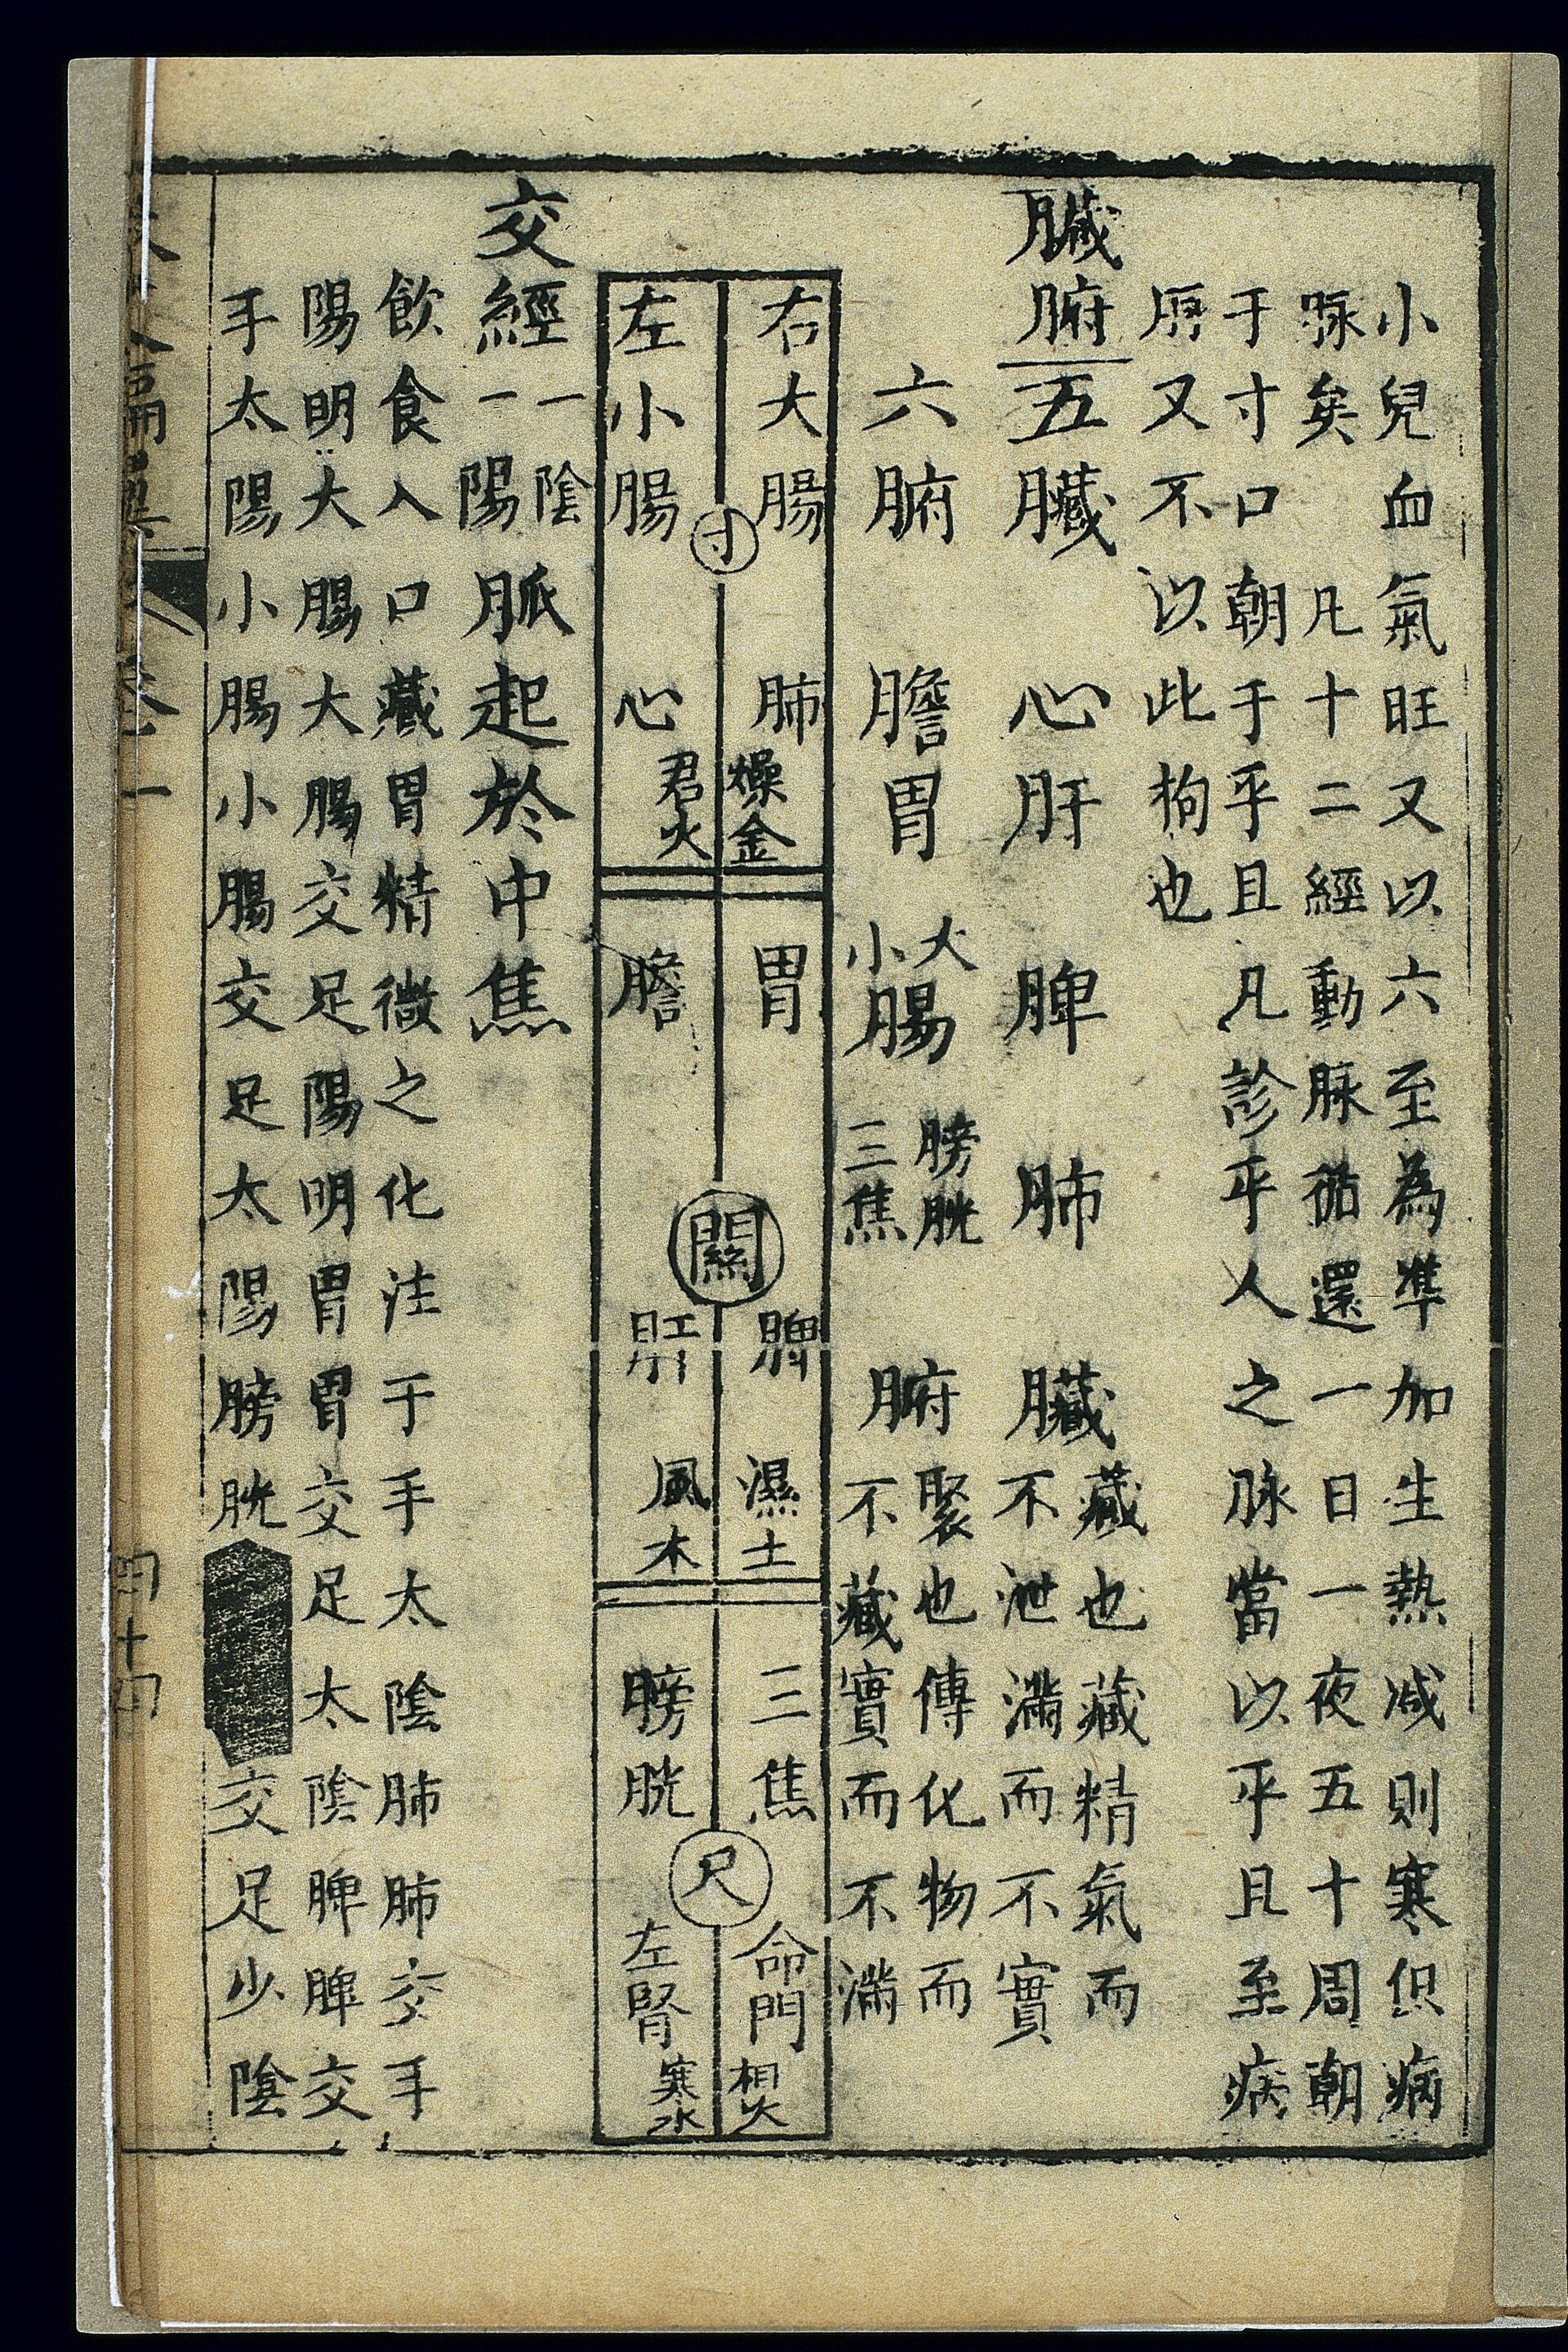 小兒血氣旺又以六至為準加生熱減則寒但病
脉矣 凡十二經動脉循還一日一夜五十周朝
于寸口朝于平旦凡診平人之脉當以平旦至病
脉又不以此拘也
臟腑
五臟 心肝 脾 肺 臟
藏也藏精氣而
不泄滿而不實
六腑 膽胃
大
小
腸
膀胱
三焦
腑
聚也傳化物而
不藏實而不滿
右大腸 肺
燥金
胃 脾
濕土
三焦 命門
相火
寸
關
尺
左小腸 心
君火
膽 肝
風木
膀胱 左腎
寒水
交經
一陰
一陽
脈起於中焦
飲食入口藏胃精微之化注于手太陰肺肺交手
陽明大腸大腸交足陽明胃胃交足太陰脾脾交
手太陽小腸小腸交足太陽膀胱
交足少陰
四十四